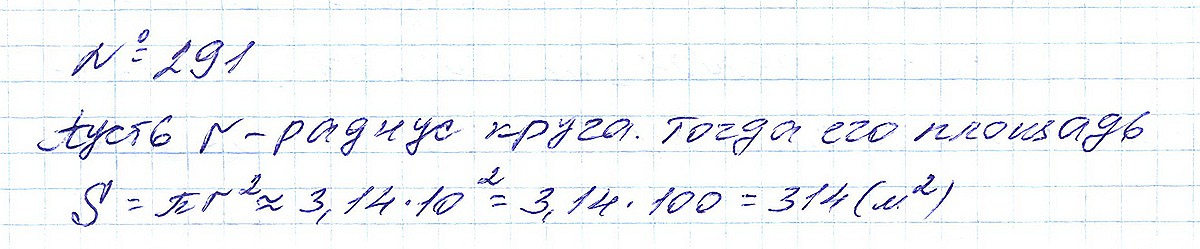 № 291
Пусть r - радиус круга. Тогда его площадь
S = πr² ≈ 3,14 · 10² = 3,14 · 100 = 314 (м²)